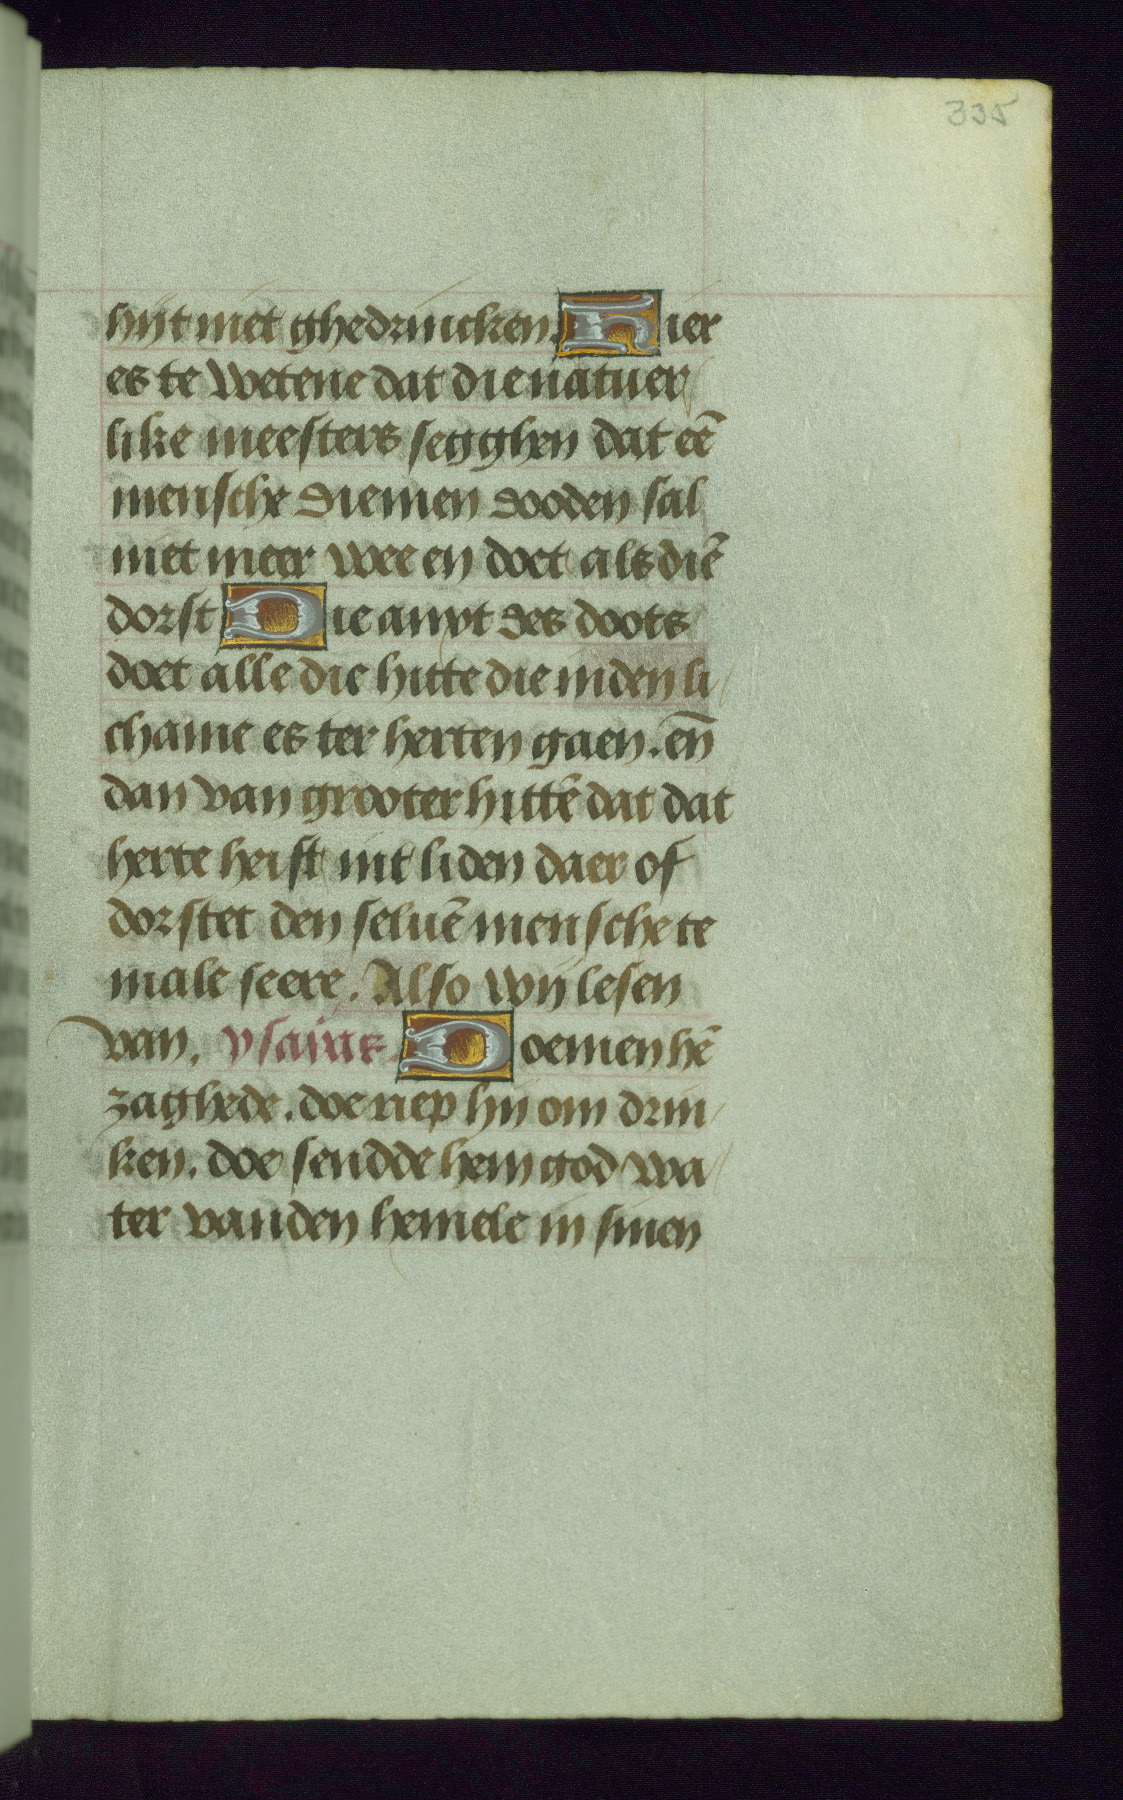 335
hijt niet ghedrincken. Hier
es te wetene dat die natuer/
like meesters segghen dat eē
mensche diemen dooden sal
niet meer wee en doet als diē
dorst Die anxt des doots
doet alle die hitte die inden li/
chame es ter herten gaen. eñ
dan van grooter hittē dat dat
herte heift int liden daer of
dorstet den seluē mensche te
male seere. Also wij lesen
van. ysaias. Doemen hē
zaghede. doe riep hij om drin/
ken. doe sendde hem god wa/
ter vanden hemele in sinen